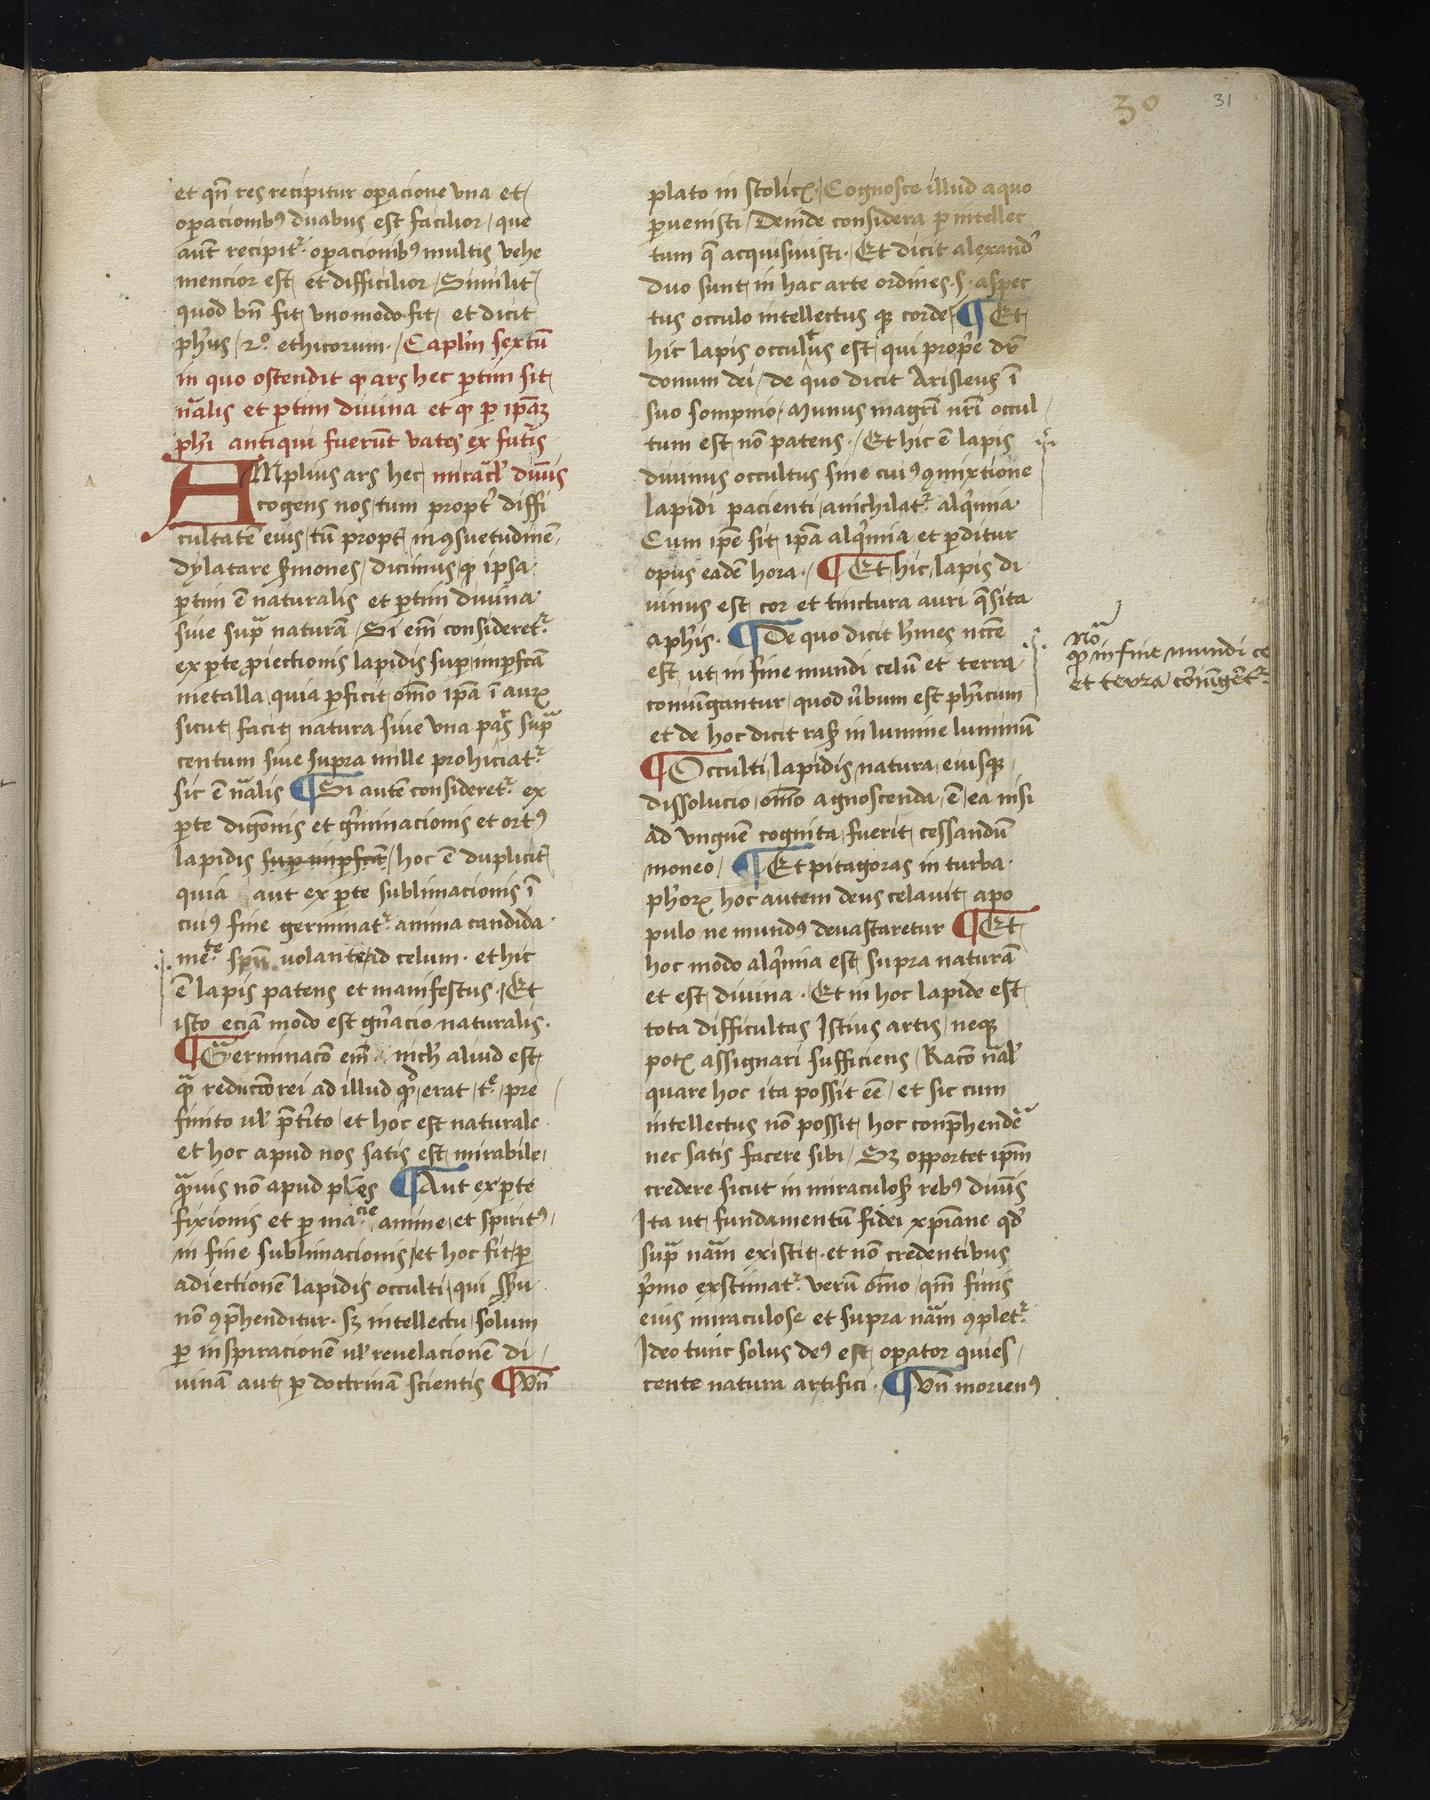 30
31
et qn̄ res recipitur operacione vna et
operacionibꝰ duabus est facilior / que
aūt recipit᷑ operacionibꝰ multis vehe
mencior est et difficilior / Similit᷑
quod vn̄ fit vnomodo fit et dicit
ph̄us / 2º ethicorum · / Caplm̄ sextū
in quo ostendit ꝙ ars hec ꝑtim sit
nālis et ꝑtim diuina et ꝙ ꝑ ip̄aꝫ
ph̄i antiqui fuerūt vates ex futis
AMplius ars hec miracl̄ diuīs
cogens nos / tum propt᷑ diffi
cultatē eius / tū propt᷑ inꝯsuetudinē
dylatare s̄mones / dicimus ꝙ ipsa
ꝑtim ē naturalis et ꝑtim diuina
siue supᷓ naturā / Si em̄ consideret᷑
ex ꝑte ꝓiectionis lapidis suꝑ imꝑfcā
metalla quia ꝑficit om̄o ip̄a ī auꝝ
sicut facit natura siue vna pars supᷓ
centum siue supra mille prohiciat᷑
sic ē nālis ¶ Si autē consideret᷑ ex
ꝑte digōnis et gīminacionis et ortꝰ
lapidis suꝑ imꝑfcā / hoc ē duplicit᷑
quia aut ex ꝑte sublimacionis ī
cuiꝰ fine germinat᷑ anima candida
mēte spū volante ad celum · et hic
ē lapis patens et manifestus · / Et
isto eciā modo est gn̄acio naturalis ·
¶ Germinacō em̄ nich̄ aliud est
qᷓ reductō rei ad illud qd̄ erat / te / pre
finito ul̄ p̄t̄ito / et hoc est naturale
et hoc apud nos satis est mirabile
qᷓuis nō apud pl̄es ¶ Aut ex ꝑte
fixionis et ꝑmanc̄ie anime et spiritꝰ
in fine sublimacionis / et hoc fit ꝑ
adiectionē lapidis occulti / qui s̄su
nō ꝯp̄henditur · sꝫ intellectu solum
ꝑ inspiracionē ul̄ reuelacionē di
uinā aut ꝑ doctrinā scientis ¶ Vn̄
plato in stolicꝝ · / Cognosce illud a quo
ꝑuenisti / Deinde considera ꝑ intellec
tum qē acquisiuisti · / Et dicit alexand᷑
duo sunt in hac arte ordines · s · aspec
tus occulo intellectus qꝫ corde ¶ Et
hic lapis occultus est / qui propͥe dr̄
donum dei / de quo dicit Arisleus ī
suo sompnio / Munus magr̄i nr̄i occul
tum est nō patens · / Et hic ē lapis
diuinus occultus sine cuiꝰ ꝯmixtione
lapidi pacienti / anichilat᷑ alq̄mia
Cum ip̄e sit ip̄a alq̄mia et ꝑditur
opus eadē hora · / ¶ Et hic lapis di
uinus est cor et tinctura auri qͤsita
a ph̄is · ¶ De quo dicit h̄mes nccē
est ut in fine mundi celū et terra
coniūgantur / quod ūbum est ph̄icum
et de hoc dicit rasꝫ in lumine luminū
¶ Occulti lapidis natura eiusqꝫ
dissolucio / om̄o agnoscenda ē / ea nisi
ad vnguē cognita fuerit cessandū
moneo / ¶ Et pitagoras in turba
ph̄oꝝ hoc autem deus celauit apo
pulo ne mundꝰ deuastaretur ¶ Et
hoc modo alq̄mia est supra naturā
et est diuina · Et in hoc lapide est
tota difficultas Istius artis / neqꝫ
potꝫ assignari sufficiens / Racō nāl̄
quare hoc ita possit eē / et sic cum
intellectus nō possit hoc conp̄hendēᷓ
nec satis facere sibi / Sꝫ opportet ip̄m
credere sicut in miraculosꝫ rebꝰ diuīs
Ita ut fundamentū fidei xp̄iane qd̄
supᷓ nām existit · et nō credentibus
p̄mo exstimat᷑ verū om̄o / qm̄ finis
eius miraculose et supra nām ꝯplet᷑
Ideo tunc solus deꝰ est oꝑator quies
cente natura artifici · / ¶ Vn̄ morienꝰ
Nōᷓ
ꝙ in fine mundi ce
et terra cōiūgēt᷑